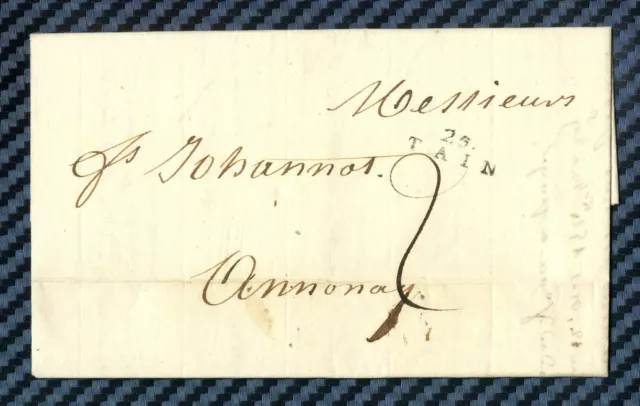 Messieurs
25.
TAIN
fs Johannot.
2
Annonay